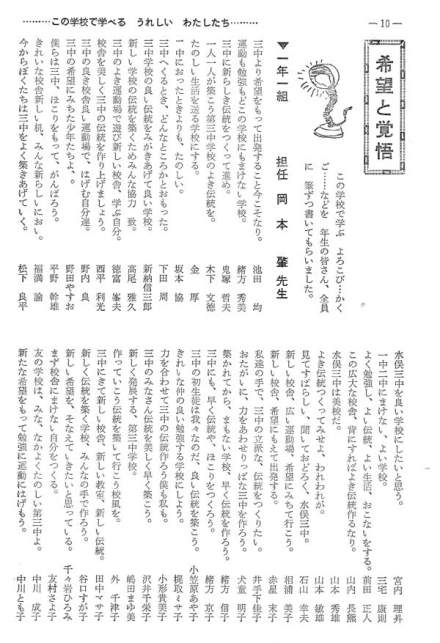 ………この学校で学べる うれしい わたしたち………
—10—
希望と覚悟
この学校で学ぶ よろこび…かく
ご……などを 年生の皆さん、全員
に 筆ずつ書いてもらいました。
▼一年一組 担任 岡本 肇先生
三中より希望をもって出発すること今こそなり。 池田 均
運動も勉強もどこの学校にもまけない学校。 緒方 秀美
三中に新らしき伝統をつくって進め。 鬼塚 哲夫
一人一人が築こう第三中学校のよき伝統を。 木下 文徳
たのしい生活を送る学校にする。 金 厚
一中におったときよりも、たのしい。 坂本 協
三中へくるとき、どんなところかとおもった。 下田 周
三中学校の良い伝統をみがきあげて良い学校。 新納信三郎
新しい学校の伝統を築くためみんな協力一致。 高尾 雅久
三中のよき運動場で遊び新しい校舎、学ぶ自分。 徳富 峯夫
校舎を美しく三中の伝統を作り上げましょう。 西平 利光
三中の良き校舎良い運動場で、はげむ自分達。 野内 良
三中の希望にみちた少年たちよ、。 野田やすお
僕らは三中、ほこりをもって、がんばろう。 平野 幹雄
きれいな校舎新しい机、みんな新らしいにおい。 福満 諭
今からぼくたちは三中をよく築きあげていく。 松下 良平
水俣三中を良い学校にしたいと思う。 宮内 理昇
一中二中にまけない、よい学校。 三宅 康則
よく勉強し、よい伝統、よい生活、おこないをする。 前田 正人
この広大な校舎、背にすればよき伝統作るなり。 山内 長熊
水俣三中は美校だ。 山本 秀雄
よき伝統つくってみせよ、われわれが。 山本 敏雄
見てすばらしい、聞いておどろく、水俣三中。 石山 幸夫
新しい校舎、広い運動場、希望にみちて行こう。 相浦 美子
新しい校舎、希望にもえて出発する。 赤星 末子
私達の手で、三中の立派な、伝統をつくりたい。 井手下佳子
おたがいに、力をあわせりっぱな三中を作ろう。 犬童 明子
築かれてから、まもない学校、早く伝統を作ろう。 緒方 信子
三中の、早く伝統や、ほこりをつくろう。 緒方 京子
三中の初生徒は我々なのだ、良い伝統を築こう。 小笠原あや子
きれいな仲の良い勉強する学校にしよう。 梶取ミサ子
力を合わせて三中の伝統作ろう僕も私も。 小形貴美子
三中のみなさん伝統を美しく早く築こう。 沢井千栄子
新しく発展する、第三中学校。 嶋田まゆ美
作っていこう伝統を築いて行こう校風を。 外 千津子
三中にきて新しい校舎、新しい教室、新しい伝統。 田中マサ子
新しく伝統を築く学校、みんなの手で作ろう。 谷口すが子
新しい希望を、そなえていきたいと思っている。 千々岩ひろみ
まず校舎にまけない自分をつくる。 友村さよ子
友の学校は、みな、なかよくたのしい第三中よ。 中川 成子
新たな希望をもって勉強に運動にはげもう。 中川とも子